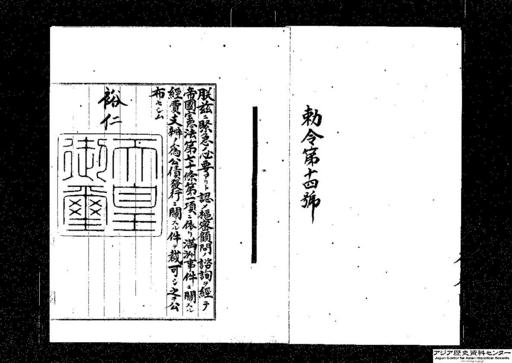 勅令第十四號
朕茲ニ緊急ノ必要アリト認メ樞密顧問ノ諮詢ヲ經テ
帝國憲法第七十條第一項ニ依リ滿洲事件ニ關スル
經費支辨ノ爲公債發行ニ關スル件ヲ裁可シ之ヲ公
布セシム
裕仁
天皇
御璽
アジア歴史資料センター
Japan Center for Asian Historical Records